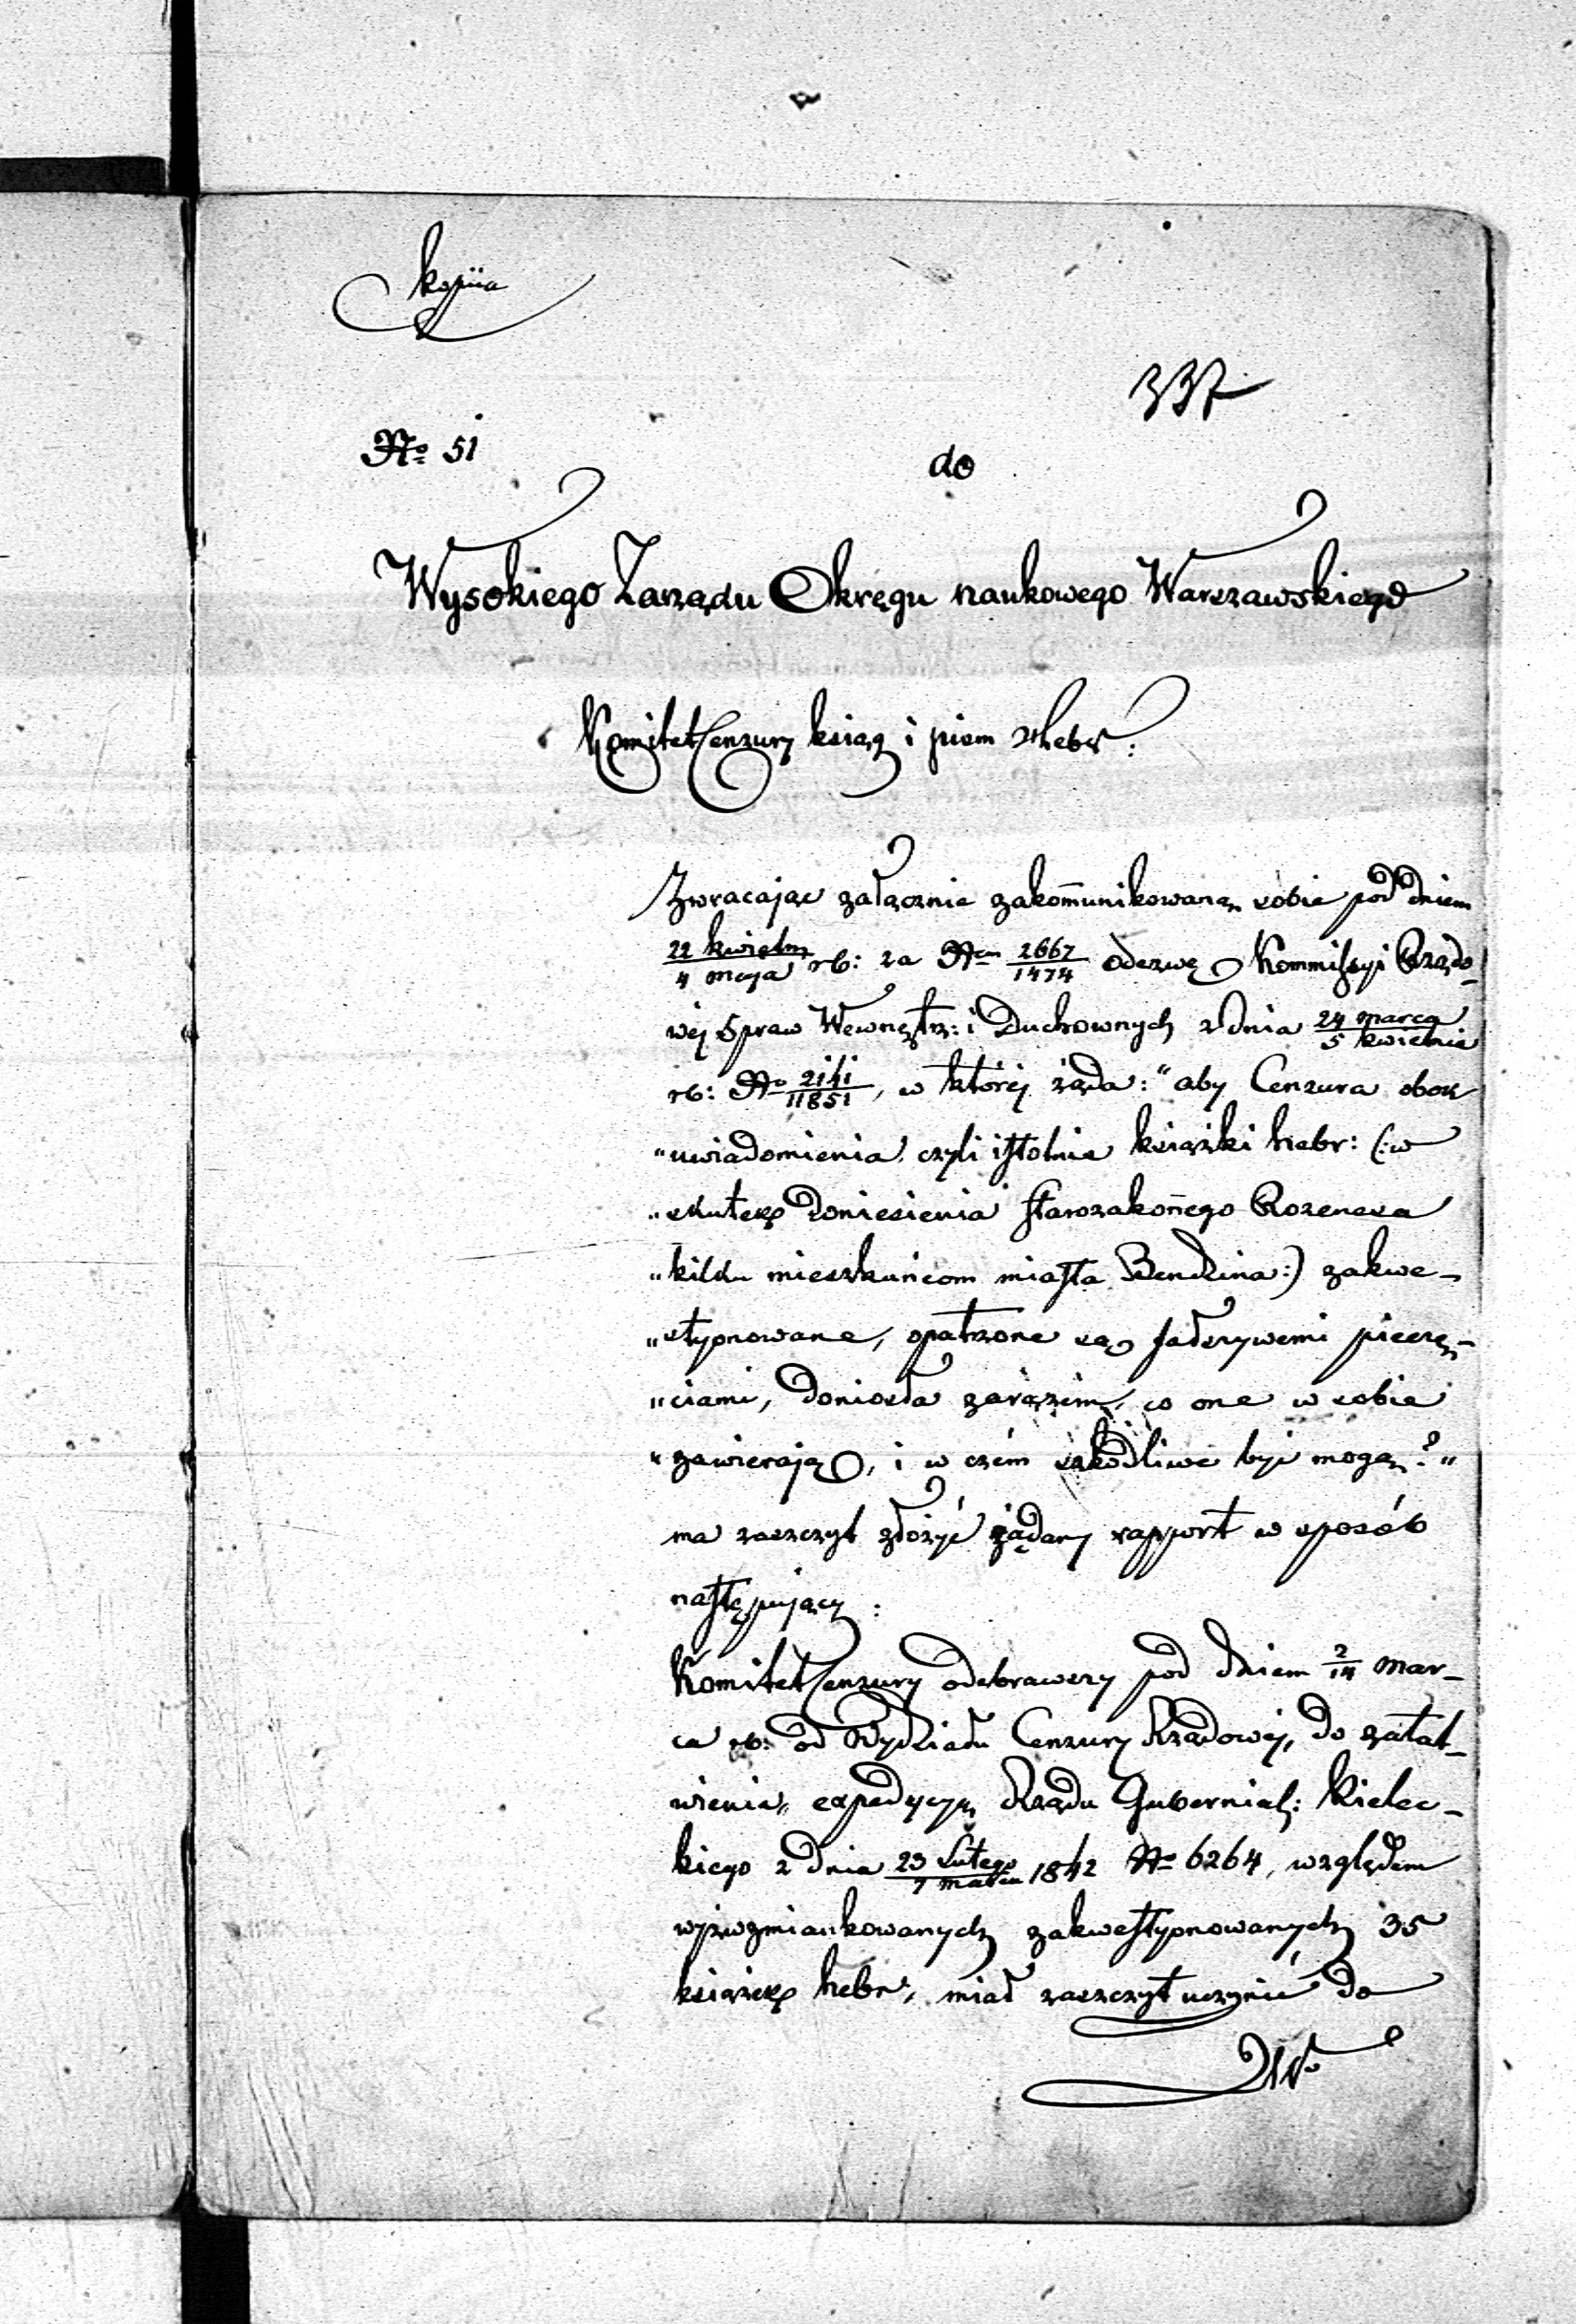 kopiia
337
No 51
do
Wysokiego Zarządu Okręgu naukowego Warszawskiego
Komitet Cenzury ksiąg i pism hebr:
Zwracając załącznie zakom̄unikowaną sobie pod dniem
22 kwietn / 4 maja rb: za Nem 2667/1474 odezwę Kommissyi Rządo-
wéj Spraw Wewnętrz: i Duchownych z dnia 24 marca / 5 kwietnia
rb: No 2141/11851, w któréj żąda: "aby Cenzura obok
"uwiadomienia czyli istotnie książki hebr: (:w
"skutek doniesienia starozakon̄ego Rozenesa
"kilku mieszkańcom miasta Bendzina:) zakwe-
"styonowane, opatrzone są fałszywemi pieczę-
"ciami, doniosła zarazem, co one w sobie
"zawierają, i w czém szkodliwe być mogą?"
ma zaszczyt złożyć żądany rapport w sposób
następujący:
Komitet Cenzury odebrawszy pod dniem 2/14 mar-
ca rb: od Wydziału Cenzury Rządowéj, do załat-
wienia, expedycyę Rządu Gubernial: Kielec-
kiego z dnia 23 Lutego / 7 marca 1842 No 6264, względem
wyżwzmiankowanych zakwestyonowanych 35
książek hebr:, miał zaszczyt uczynić do